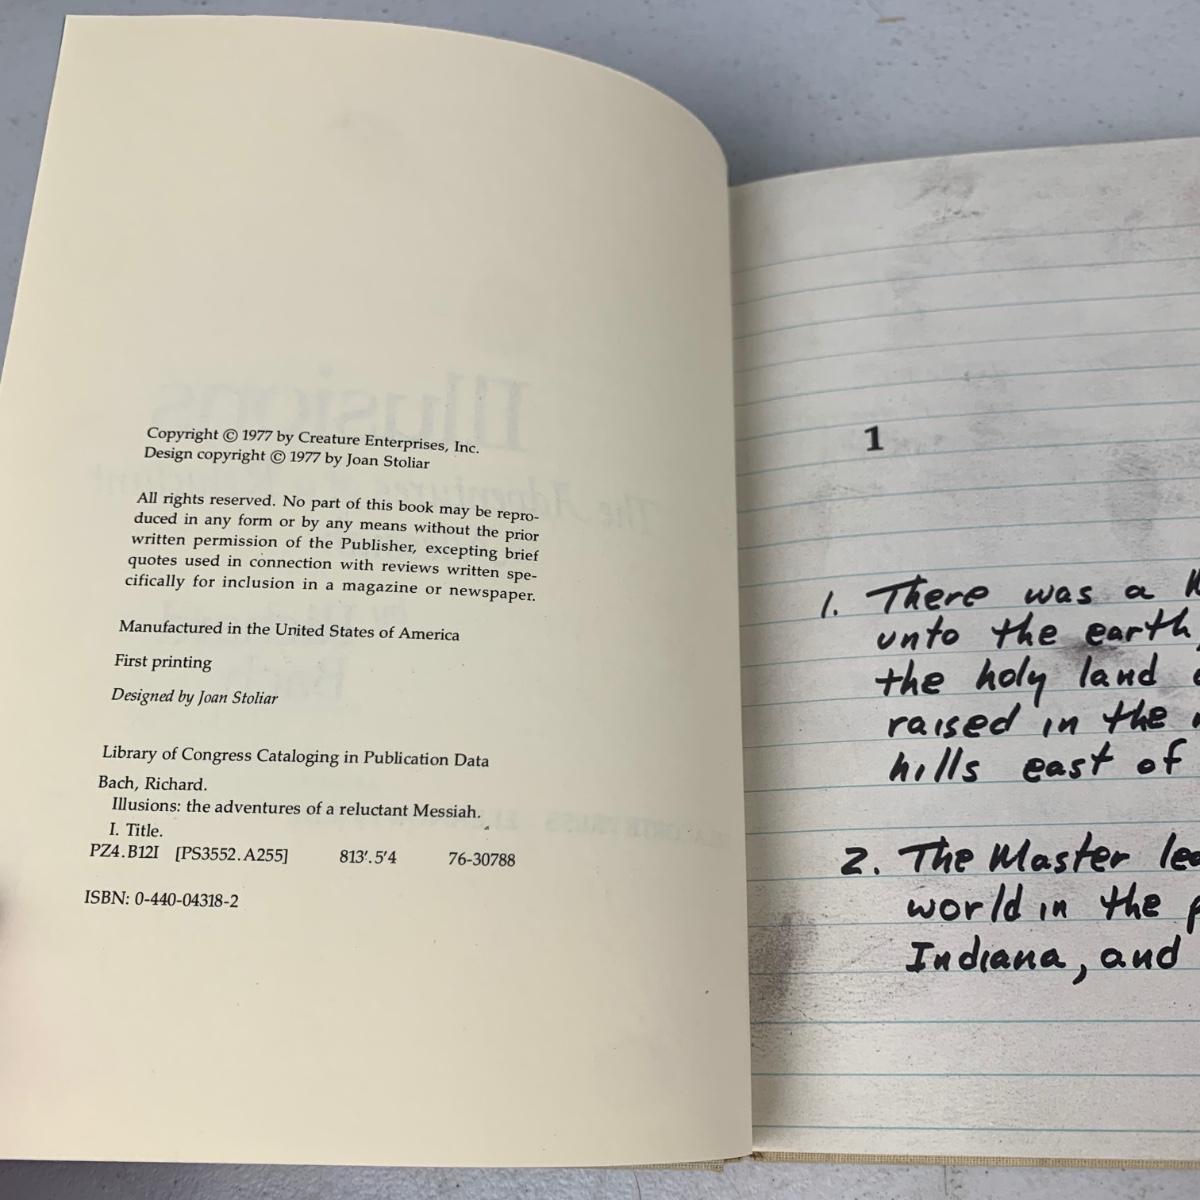 Copyright © 1977 by Creature Enterprises, Inc.
Design copyright © 1977 by Joan Stoliar
All rights reserved. No part of this book may be repro-
duced in any form or by any means without the prior
written permission of the Publisher, excepting brief
quotes used in connection with reviews written spe-
cifically for inclusion in a magazine or newspaper.
Manufactured in the United States of America
First printing
Designed by Joan Stoliar
Library of Congress Cataloging in Publication Data
Bach, Richard.
Illusions: the adventures of a reluctant Messiah.
I. Title.
PZ4.B12I [PS3552.A255] 813'.5'4 76-30788
ISBN: 0-440-04318-2
1
1. There was a
unto the earth,
the holy land
raised in the
hills east of
2. The Master
world in the
Indiana, and